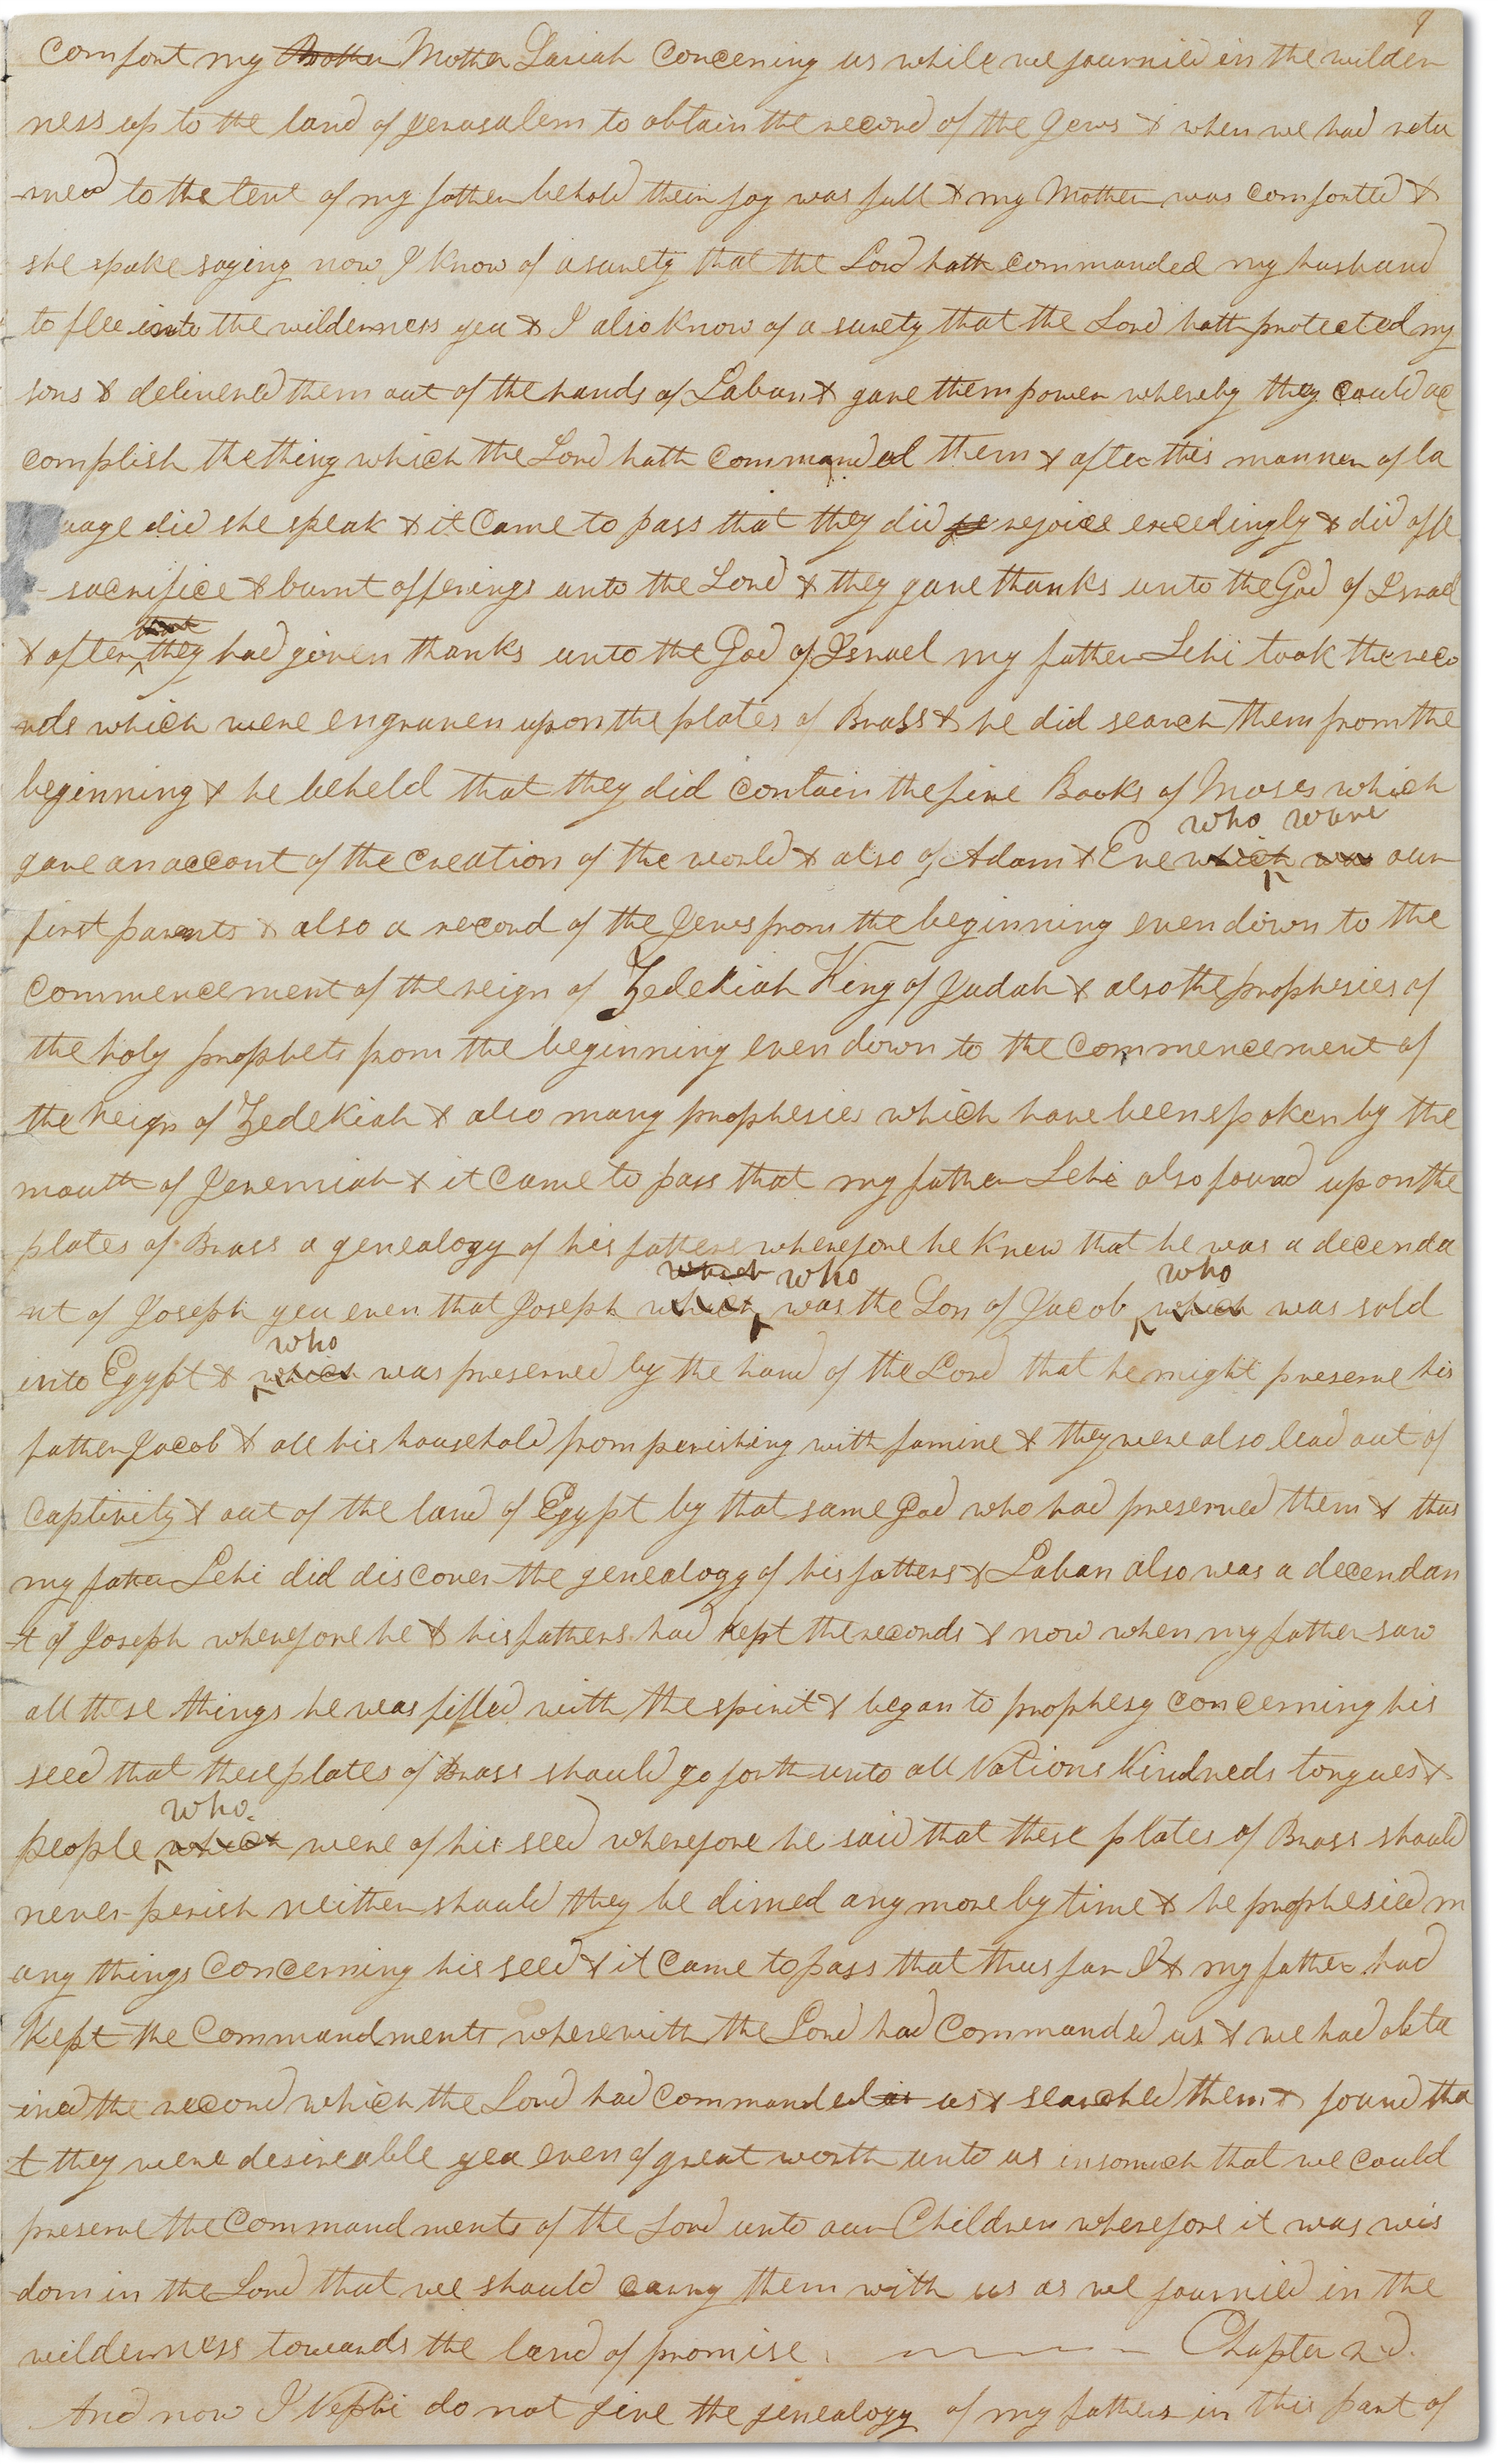 9
comfort my Brother Mother Sariah Concerning us while we journied in the wilder
ness up to the land of Jerusalem to obtain the record of the Jews & when we had retu
-rned to the tent of my father behold their joy was full & my Mother was comforted &
she spake saying now I know of a surety that the Lord hath commanded my husband
to flee into the wilderness yea & I also know of a surety that the Lord hath protected my
sons & delivered them out of the hands of Laban & gave them power whereby they could ac
complish the thing which the Lord hath commanded them & after this manner of la
uage did she speak & it came to pass that they did re rejoice excedingly & did offe
- sacrifice & burnt offerings unto the Lord & they gave thanks unto the God of Israel
& after they had given thanks unto the God of Israel my father Lehi took the reco
rds which were engraven upon the plates of Brass & he did search them from the
beginning & he beheld that they did contain the five Books of Moses which
who ware
gave an accont of the creation of the world & also of Adam & Eve which was our
first parents & also a record of the Jews from the beginning even down to the
commencement of the reign of Zedekiah King of Judah & also the prophesies of
the holy prophets from the beginning even down to the commencement of
the reign of Zedekiah & also many prophesies which have been spoken by the
mouth of Jeremiah & it came to pass that my father Lehi also found upon the
plates of Brass a genealogy of his fathers wherefore he knew that he was a decenda
which who who
nt of Joseph yea even that Joseph which was the Son of Jacob which was sold
who
into Egypt & which was preserved by the hand of the Lord that he might preserve his
father Jacob & all his household from perishing with famine & they were also lead out of
captivity & out of the land of Egypt by that same God who had preserved them & thus
my father Lehi did discover the genealogy of his fathers & Laban also was a decendan
-t of Joseph wherefore he & his fathers had kept the records & now when my father saw
all these things he was filled with the spirit & began to prophesy concerning his
seed that these plates of Brass should go forth unto all Nations Kindreds tongues &
who
people which were of his seed wherefore he said that these plates of Brass should
never perish neither should they be dimed any more by time & he prophesied m
any things concerning his seed & it came to pass that thus far I & my father had
kept the commandments wherewith the Lord had commanded us & we had obta
-ined the record which the Lord had commanded us us & searched them & found tha
-t they were desireable yea even of great worth unto us insomuch that we could
preserve the commandments of the Lord unto our Children wherefore it was wis
dom in the Lord that we should carry them with us as we journied in the
wilderness towards the land of promise Chapter 2d.
And now I Nephi do not give the genealogy of my fathers in this part of